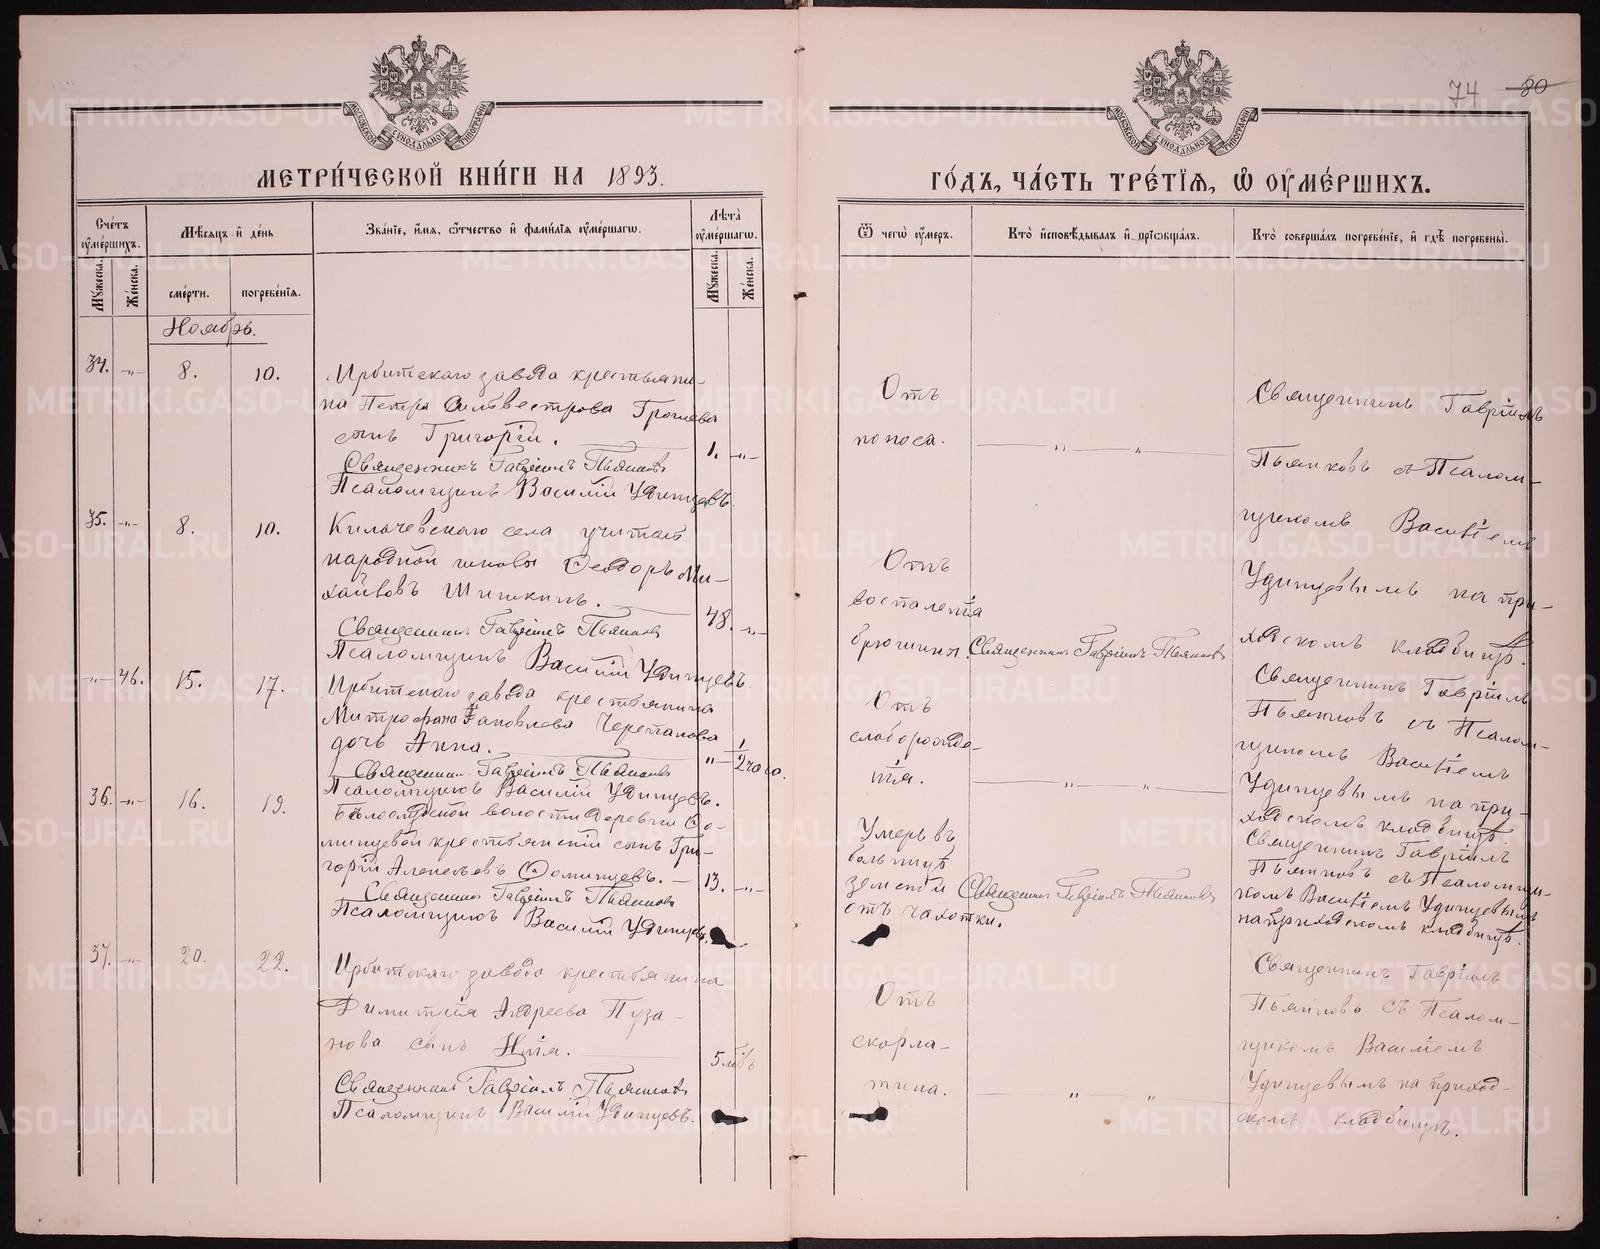 74 80
МОСКОВСКОЙ СѴНОДАЛЬНОЙ ТИПОГРАФІИ
МОСКОВСКОЙ СѴНОДАЛЬНОЙ ТИПОГРАФІИ
МЕТРИ́ЧЕСКОЙ КНИ́ГИ НА 1893.
ГО́ДЪ, ЧА́СТЬ ТРЕ́ТІѦ, Ѡ҆ ОУ҆МЕ́РШИХЪ.
Сче́тъ оу҆ме́ршихъ.
Мѣ́сѧцъ и҆ де́нь
Зва́нїе, и҆́мѧ, ѻ҆́тчество и҆ фами́лїѧ оу҆ме́ршагѡ.
Лѣ́та оу҆ме́ршагѡ.
Ѿ чегѡ̀ оу҆́меръ.
Кто̀ и҆сповѣ́дывалъ и҆ прїѡбща́лъ.
Кто̀ соверша́лъ погребе́нїе, и҆ гдѣ̀ погребены̀.
Мꙋ́жеска.
Же́нска.
сме́рти.
погребе́нїѧ.
Мꙋ́жеска.
Же́нска.
Ноябрь.
34. -„- 8. 10.
Ирбитскаго завода крестьяни-
на Петра Сильвестрова Грошева
сынъ Григорій.
1. -„-
Священникъ Гавріилъ Пьянковъ
Псаломщикъ Василій Удинцевъ.
Отъ
поноса.
„ „
Священникъ Гавріилъ
Пьянковъ съ Псалом-
щикомъ Василіемъ
Удинцевымъ на при-
ходскомъ кладбищѣ.
35. -„- 8. 10.
Килачевскаго села учитель
народной школы Ѳеодоръ Ми-
хайловъ Шишкинъ.
48. -„-
Священникъ Гавріилъ Пьянковъ
Псаломщикъ Василій Удинцевъ.
Отъ
воспаленія
брюшины.
Священникъ Гавріилъ Пьянковъ
-„- 46. 15. 17.
Ирбитскаго завода крестьянина
Митрофана Яковлева Черепанова
дочь Анна.
-„- 1/2 часа.
Священникъ Гавріилъ Пьянковъ
Псаломщикъ Василій Удинцевъ.
Отъ
слаборожде-
нія.
„ „
Священникъ Гавріилъ
Пьянковъ съ Псалом-
щикомъ Василіемъ
Удинцевымъ на при-
ходскомъ кладбищѣ.
36. -„- 16. 19.
Бѣлослудской волости деревни Ѳо-
минцевой крестьянскій сынъ Гри-
горій Алексѣевъ Ѳоминцевъ.
13. -„-
Священникъ Гавріилъ Пьянковъ
Псаломщикъ Василій Удинцевъ.
Умеръ въ
больницѣ
земской
отъ чахотки.
Священникъ Гавріилъ Пьянковъ
Священникъ Гавріилъ
Пьянковъ съ Псаломщи-
комъ Василіемъ Удинцевымъ
на приходскомъ кладбищѣ.
37. -„- 20. 22.
Ирбитскаго завода крестьянина
Димитрія Андреева Пуза-
нова сынъ Илія.
5 лѣтъ
Священникъ Гавріилъ Пьянковъ
Псаломщикъ Василій Удинцевъ.
Отъ
скарла-
тина.
„ „
Священникъ Гавріилъ
Пьянковъ съ Псалом-
щикомъ Василіемъ
Удинцевымъ на приход-
скомъ кладбищѣ.
METRIKI.GASO-URAL.RU